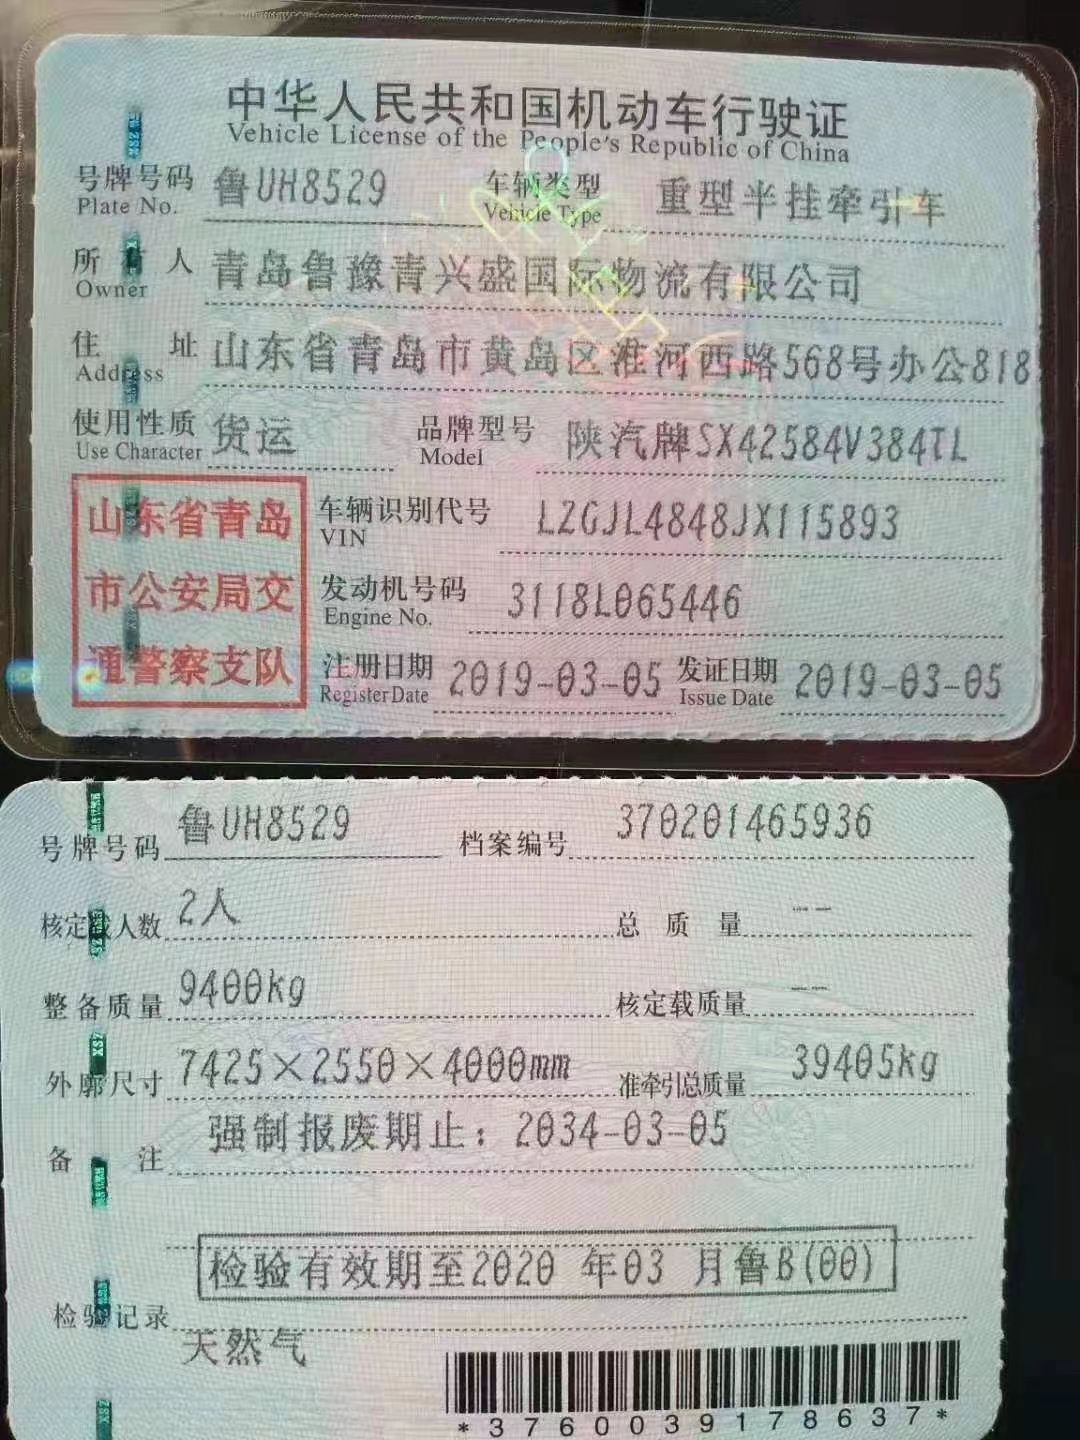 中华人民共和国机动车行驶证
Vehicle License of the People's Republic of China
号牌号码 鲁UH8529 车辆类型 重型半挂牵引车
Plate No. Vehicle Type
所有人 青岛鲁豫青兴盛国际物流有限公司
Owner
住址 山东省青岛市黄岛区淮河西路568号办公818
Address
使用性质 货运 品牌型号 陕汽牌SX42584V384TL
Use Character Model
山东省青岛
市公安局交
通警察支队
车辆识别代号 LZGJL4848JX115893
VIN
发动机号码 3118L065446
Engine No.
注册日期 2019-03-05 发证日期 2019-03-05
Register Date Issue Date
号牌号码 鲁UH8529 档案编号 370201465936
核定载人数 2人 总质量 --
整备质量 9400kg 核定载质量 --
外廓尺寸 7425×2550×4000mm 准牵引总质量 39405kg
备注 强制报废期止：2034-03-05
检验有效期至2020 年03 月鲁B(00)
检验记录
天然气
*3760039178637*